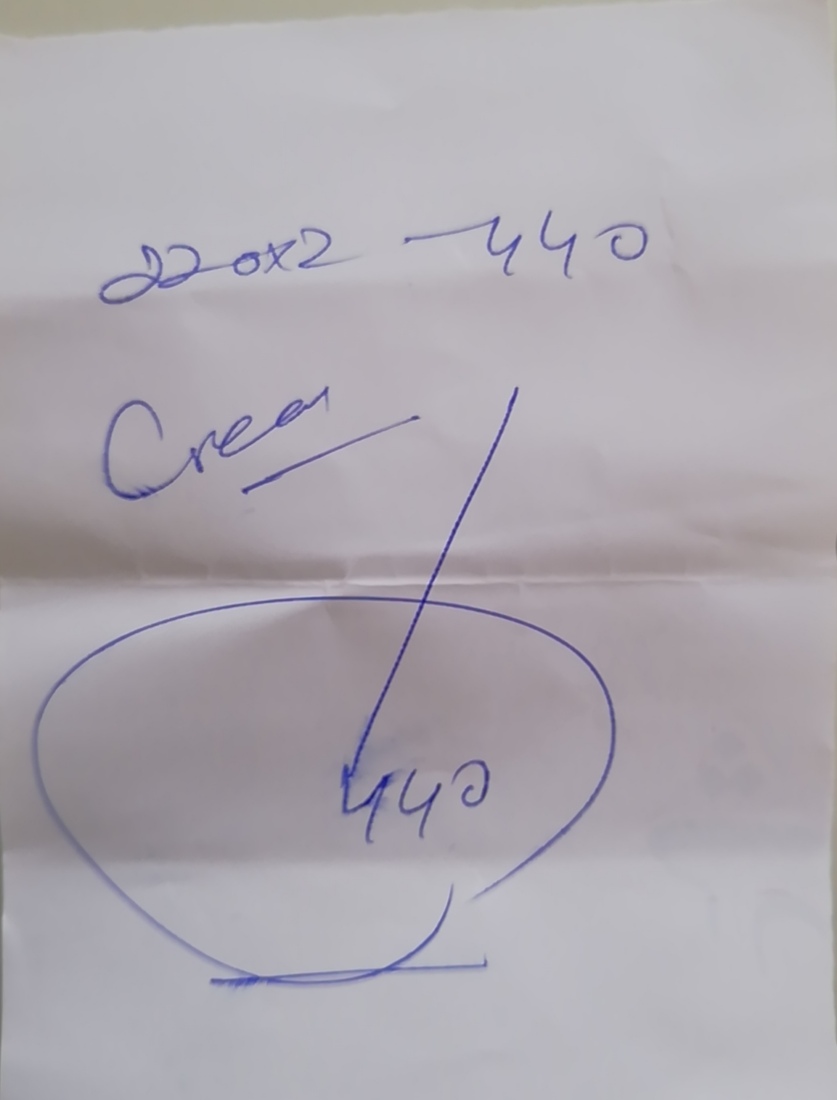 220x2 - 440
Cream
440